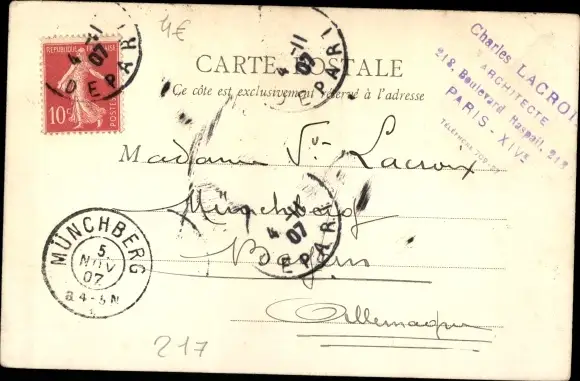 4€
RÉPUBLIQUE FRANÇAISE
10c
POSTES
4 -11
07
DEPART
4 -11
07
DEPART
CARTE POSTALE
Ce côté est exclusivement réservé à l'adresse
Charles LACROIX
ARCHITECTE
218, Boulevard Raspail, 218
PARIS-XIVe
TÉLÉPHONE
Madame Vve Lacroix
Münchberg
4 -11
07
DEPART
Bayern
Allemagne
MÜNCHBERG
5
NOV
07
4-5N
217